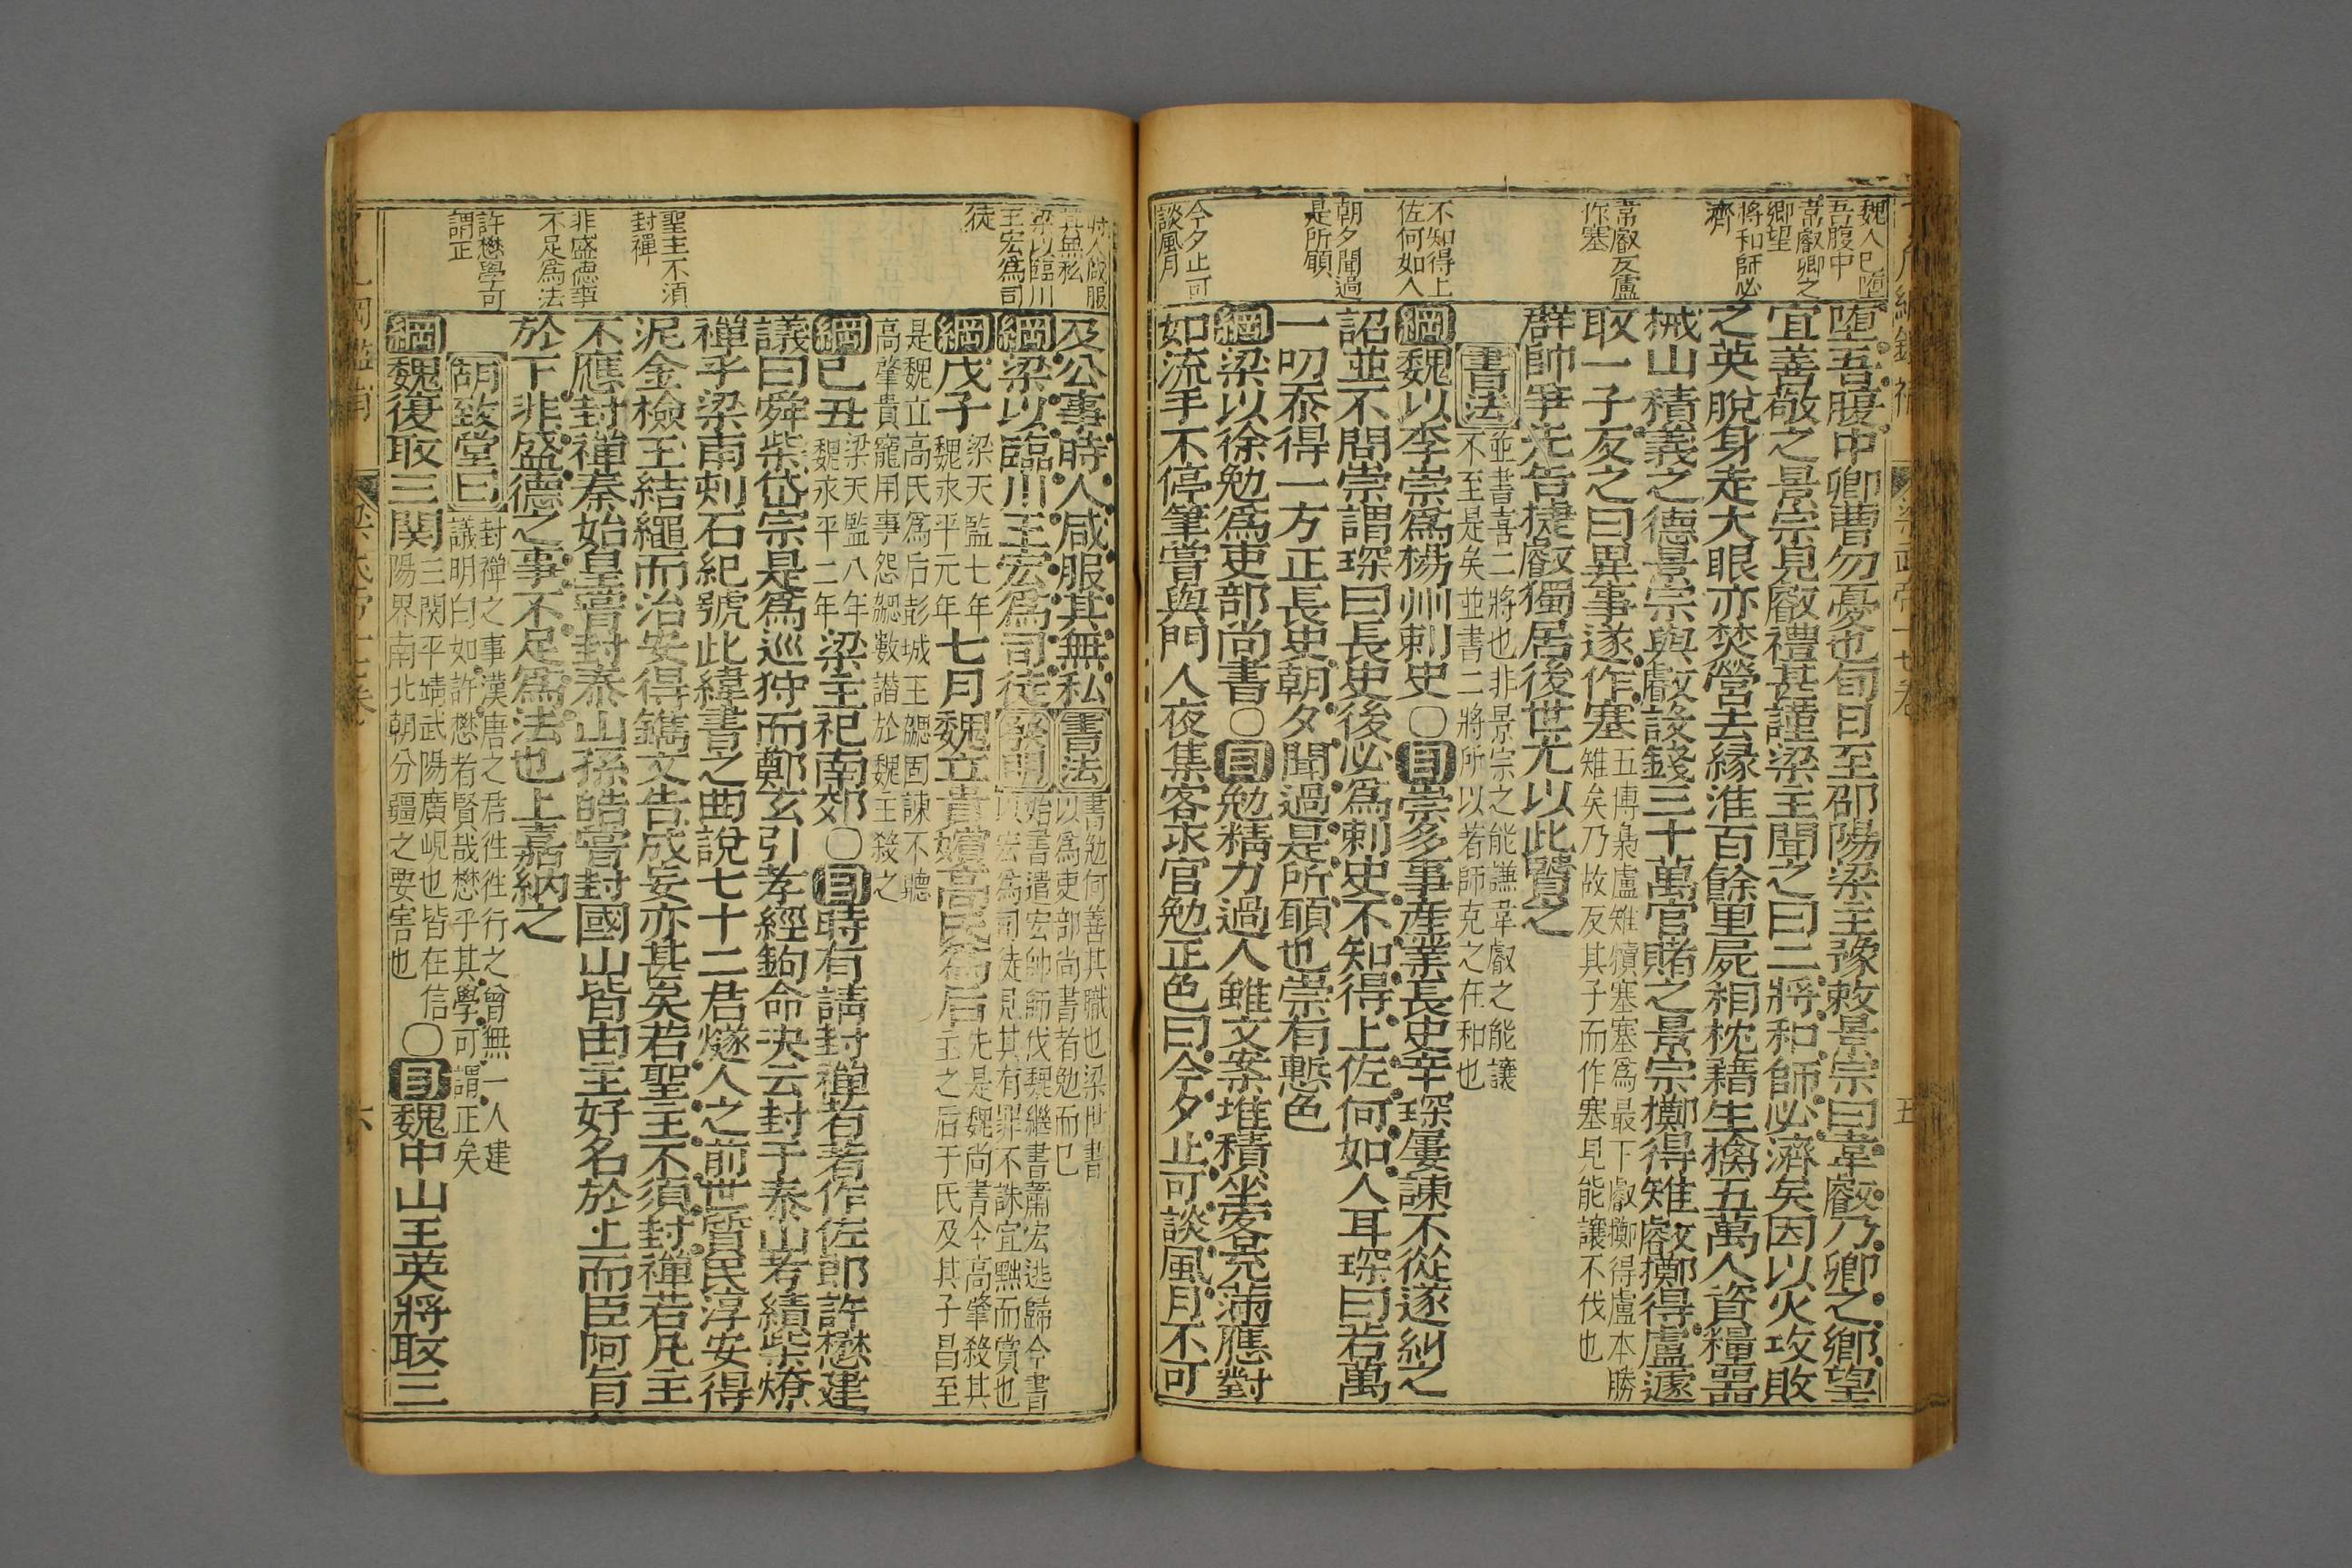 魏人已墮
吾腹中
韋叡卿之
鄉望
將和師必
濟
韋叡反盧
作塞
不知得上
佐何如人
朝夕聞過
是所願
今夕止可
談風月
墮吾腹中卿曹勿憂也旬日至邵陽梁主豫敕景宗曰韋叡乃卿之鄉望
宜善敬之景宗見叡禮甚謹梁主聞之曰二將和師必濟矣因以火攻敗
之英脫身走大眼亦焚營去緣淮百餘里屍相枕藉生擒五萬人資糧器
械山積義之德景宗與叡設錢三十萬官賭之景宗擲得雉叡擲得盧遽
取一子反之曰異事遂作塞
五博梟盧雉犢塞塞爲最下叡擲得盧本勝
雉矣乃故反其子而作塞見能讓不伐也
群帥爭先告捷叡獨居後世尤以此賢之
書法
並書喜二將也非景宗之能謙韋叡之能讓
不至是矣並書二將所以着師克之在和也
綱魏以李崇爲楊州刺史○目崇多事產業長史辛琛屢諫不從遂糾之
詔並不問崇謂琛曰長史後必爲刺史不知得上佐何如人耳琛曰若萬
一叨忝得一方正長史朝夕聞過是所願也崇有慙色
綱梁以徐勉爲吏部尚書○目勉精力過人雖文案堆積坐客充滿應對
如流手不停筆嘗與門人夜集客求官勉正色曰今夕止可談風月不可
梁武帝十七卷
五
時人咸服
其無私
梁以臨川
王宏爲司
徒
聖主不須
封禪
非盛德事
不足爲法
許懋學可
謂正
及公事時人咸服其無私
書法
書勉何善其職也梁世書
以爲吏部尚書者勉而已
綱梁以臨川王宏爲司徒
發明
始書遣宏帥師伐魏繼書蕭宏逃歸今書
以宏爲司徒見其有罪不誅宜黜而賞也
綱戊子
梁天監七年
魏永平元年
七月魏立貴嬪高氏爲后
先是魏尚書令高肇殺其
主之后于氏及其子昌至
是魏立高氏爲后彭城王勰固諫不聽
高肇貴寵用事怨勰數譖於魏主殺之
綱已丑
梁天監八年
魏永平二年
梁主祀南郊○目時有請封禪者著作佐郎許懋建
議曰舜柴岱宗是爲巡狩而鄭玄引孝經鉤命決云封于泰山考績柴燎
禪乎梁甫刻石紀號此緯書之曲說七十二君燧人之前世質民淳安得
泥金檢玉結繩而治安得鐫文告成妄亦甚矣若聖主不須封禪若凡主
不應封禪秦始皇嘗封泰山孫皓嘗封國山皆由主好名於上而臣阿旨
於下非盛德之事不足爲法也上嘉納之
胡致堂曰
封禪之事漢唐之君往往行之曾無一人建
議明白如許懋者賢哉懋乎其學可謂正矣
綱魏復取三関
三関平靖武陽廣峴也皆在信
陽界南北朝分疆之要害也
○目魏中山王英將取三
六